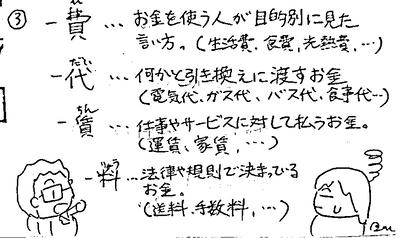 ③ ー費 … お金を使う人が目的別に見た
言い方。(生活費、食費、光熱費、…)
だい
ー代 … 何かと引き換えに渡すお金
(電気代、ガス代、バス代、食事代…)
ちん
ー賃 … 仕事やサービスに対して払うお金。
(運賃、家賃、…)
りょう
ー料 … 法律や規則で決まっている
お金。
(送料、手数料、…)